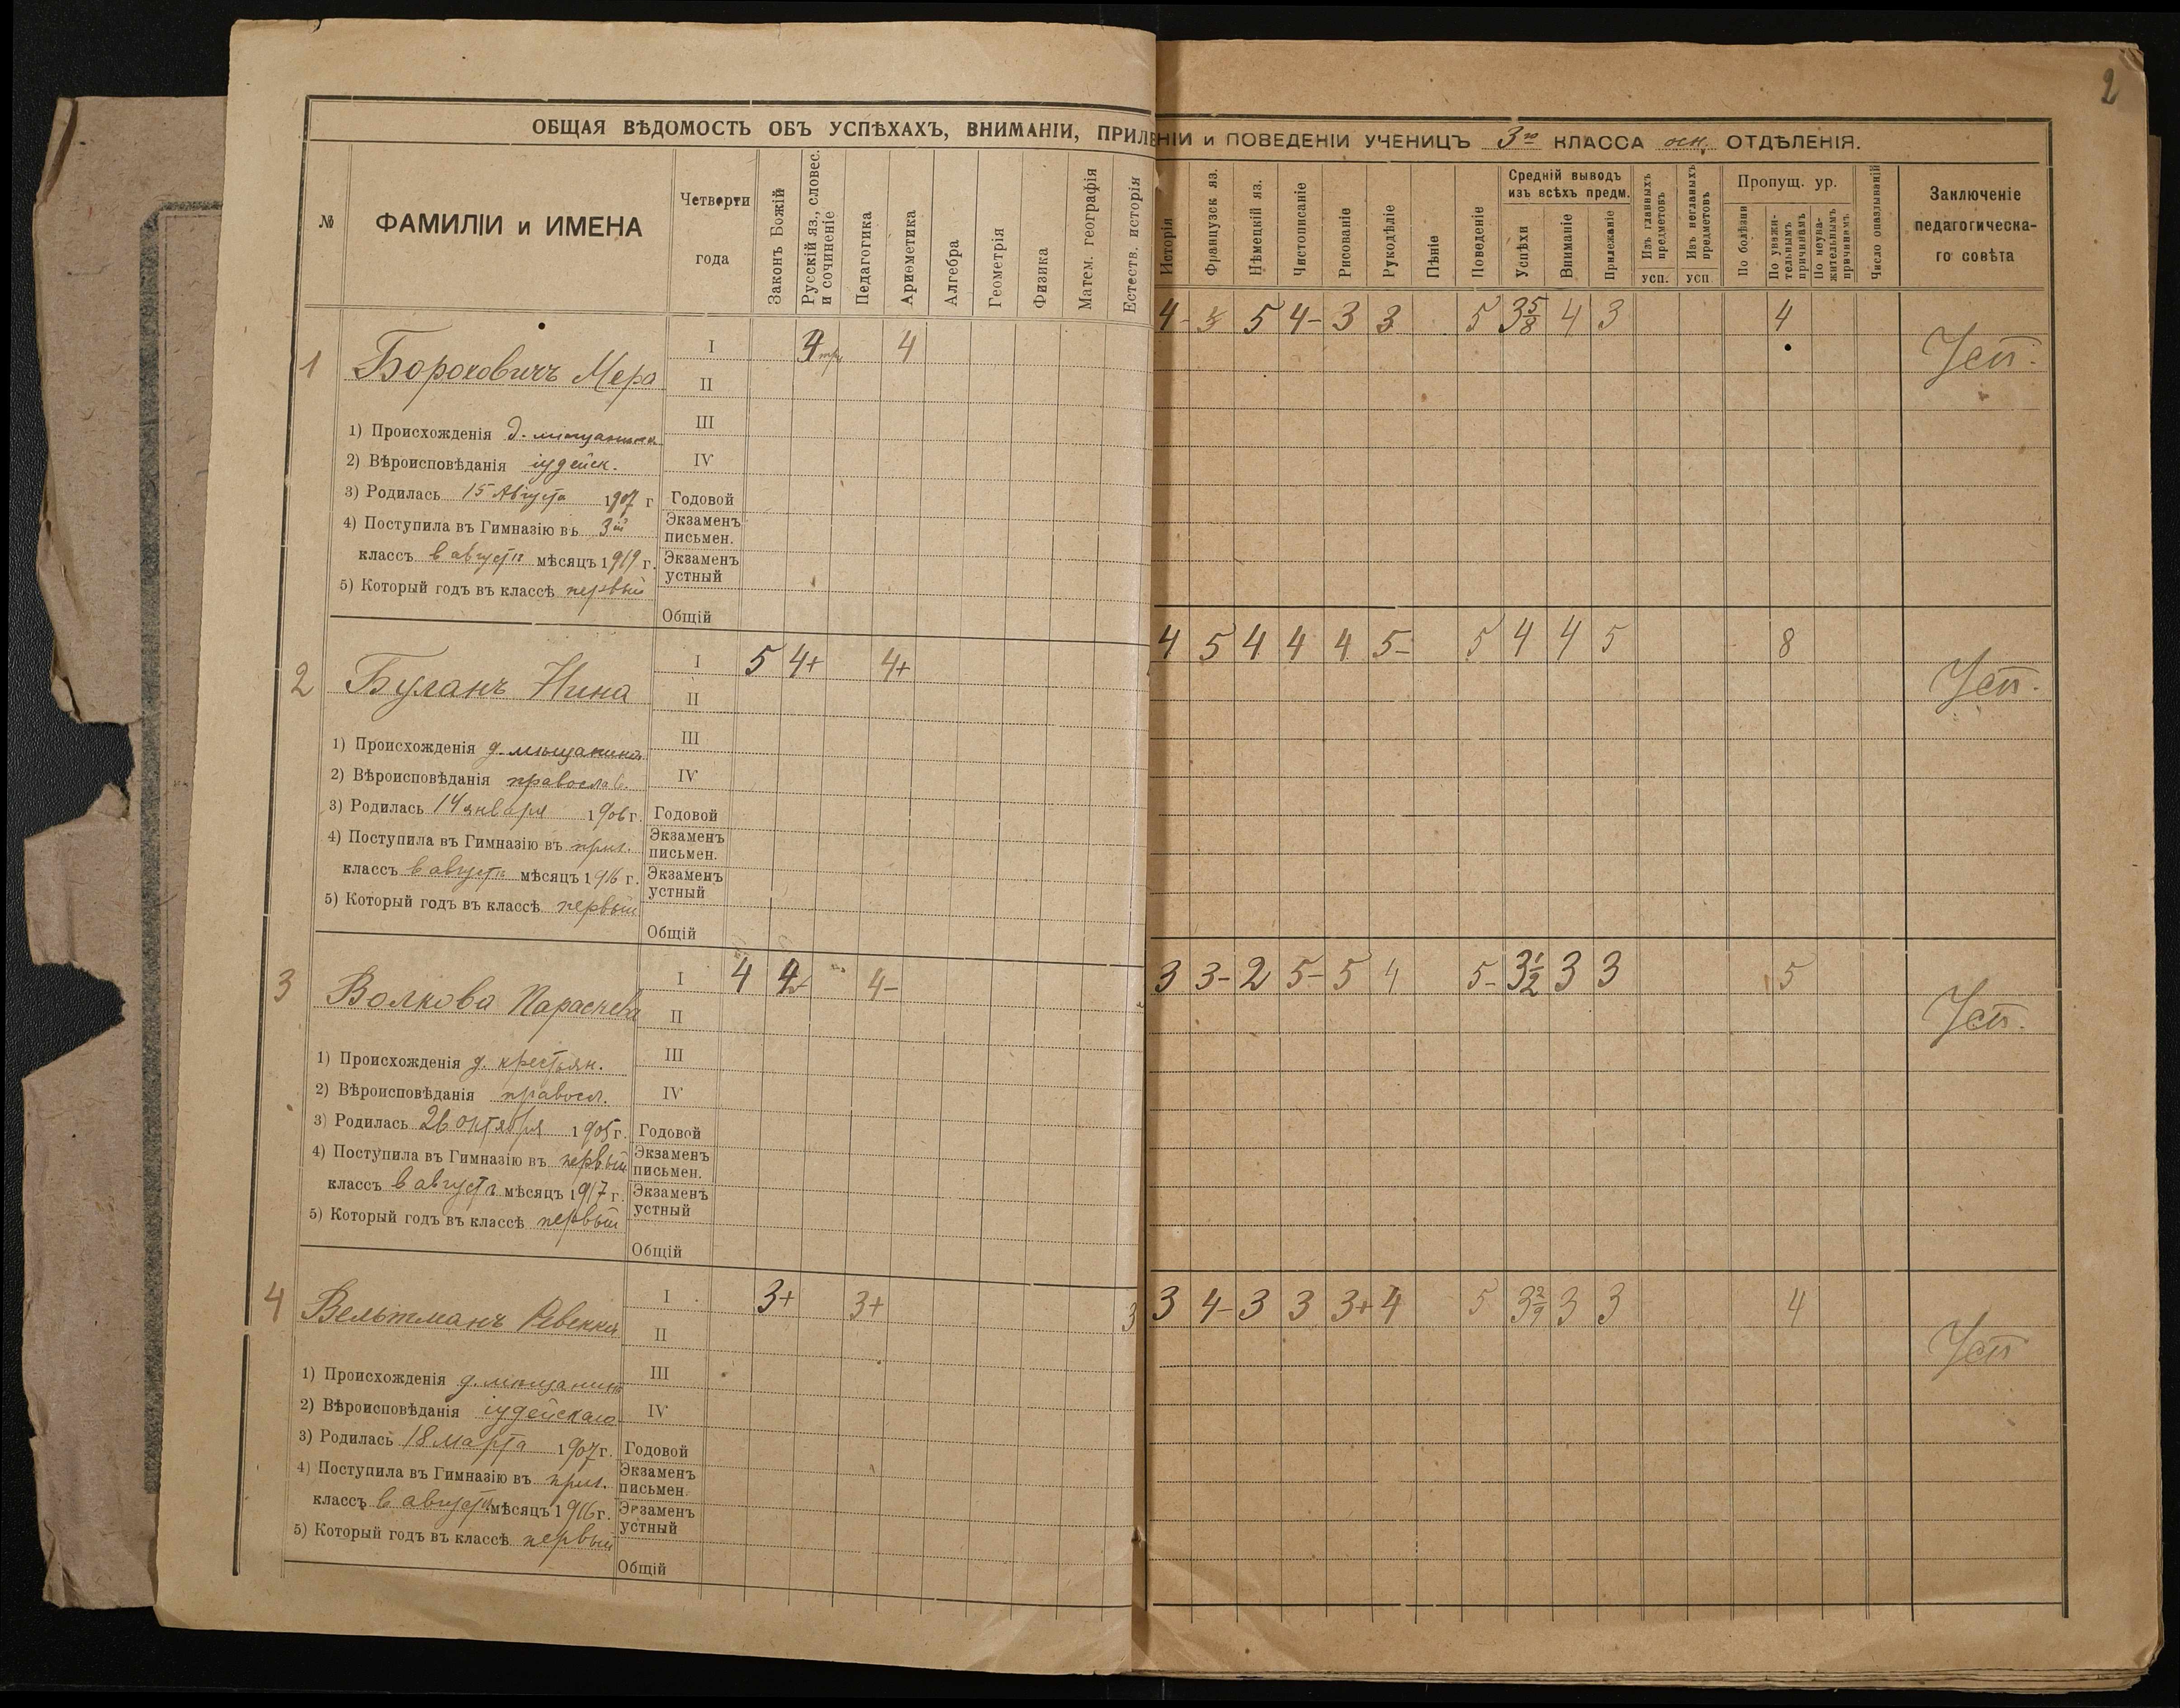 2
ОБЩАЯ ВѢДОМОСТЬ ОБЪ УСПѢХАХЪ, ВНИМАНІИ, ПРИЛЕ НІИ и ПОВЕДЕНІИ УЧЕНИЦЪ 3го КЛАССА осн. ОТДѢЛЕНІЯ.
№
ФАМИЛІИ и ИМЕНА
Четверти
года
Законъ Божій
Русскій яз., словес.
и сочиненіе
Педагогика
Ариѳметика
Алгебра
Геометрія
Физика
Матем. географія
Естеств. исторія
Исторія
Французск яз.
Нѣмецкій яз.
Чистописаніе
Рисованіе
Рукодѣліе
Пѣніе
Поведеніе
Средній выводъ
изъ всѣхъ предм.
Успѣхи
Вниманіе
Прилежаніе
Изъ главныхъ
предметовъ
усп.
Изъ неглавныхъ
предметовъ
усп
Пропущ. ур.
По болѣзни
По уважи-
тельнымъ
причинамъ
По неува-
жительнымъ
причинамъ
Число опаздываній
Заключеніе
педагогическа-
го совѣта
1 Бороковичъ Мера
I 4 4 4- 5 4- 3 3 5 3 5/8 4 3 4 Усп.
II
III
IV
1) Происхожденія д. мѣщанина
2) Вѣроисповѣданія іудейск.
3) Родилась 15 Августа 1907 г
4) Поступила въ Гимназію въ 3ій
классъ в августѣ мѣсяцъ 1919 г.
5) Который годъ въ классѣ первый
Годовой
Экзаменъ
письмен.
Экзаменъ
устный
Общій
2 Буланъ Нина
I 5 4+ 4+ 4 5 4 4 4 5- 5 4 4 5 8 Усп.
II
III
IV
1) Происхожденія д. мѣщанина
2) Вѣроисповѣданія православ.
3) Родилась 14 января 1906 г.
4) Поступила въ Гимназію въ приг.
классъ в августѣ мѣсяцъ 1916 г.
5) Который годъ въ классѣ первый
Годовой
Экзаменъ
письмен.
Экзаменъ
устный
Общій
3 Волкова Параскева
I 4 4- 4- 3 3- 2 5- 5 4 5- 3 1/2 3 3 5 Усп.
II
III
IV
1) Происхожденія д. крестьян.
2) Вѣроисповѣданія правосл.
3) Родилась 26 октября 1905 г.
4) Поступила въ Гимназію въ первый
классъ в августѣ мѣсяцъ 1917 г.
5) Который годъ въ классѣ первый
Годовой
Экзаменъ
письмен.
Экзаменъ
устный
Общій
4 Вельтманъ Ревекка
I 3+ 3+ 3 3 4- 3 3 3+ 4 5 3 2/9 3 3 4 Усп
II
III
IV
1) Происхожденія д. мѣщанина
2) Вѣроисповѣданія іудейскаго
3) Родилась 18 марта 1907 г.
4) Поступила въ Гимназію въ приг.
классъ в августѣ мѣсяцъ 1916 г.
5) Который годъ въ классѣ первый
Годовой
Экзаменъ
письмен.
Экзаменъ
устный
Общій